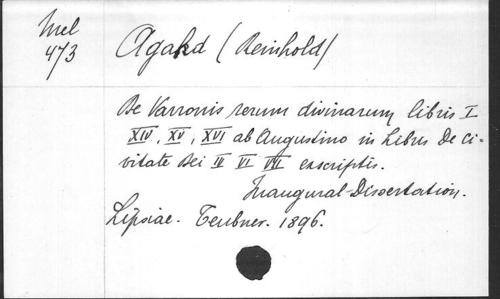 Mel
473
Agahd (Reinhold)
De Varronis rerum divinarum libris I
XIV, XV, XVI ab Augustino in Libris De Ci-
vitate Dei IV VI VII exscriptis.
Inaugural-Dissertation.
Lipsiae. Teubner. 1896.